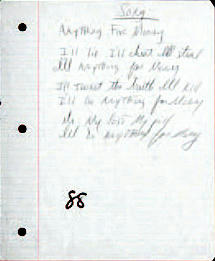 Song
Anything For Money
I'll lie I'll cheat I'll steal
I'll Anything for Money
I'll Twist the truth I'll kill
I'll do Anything for Money
My My
I'll do anything for Money
88